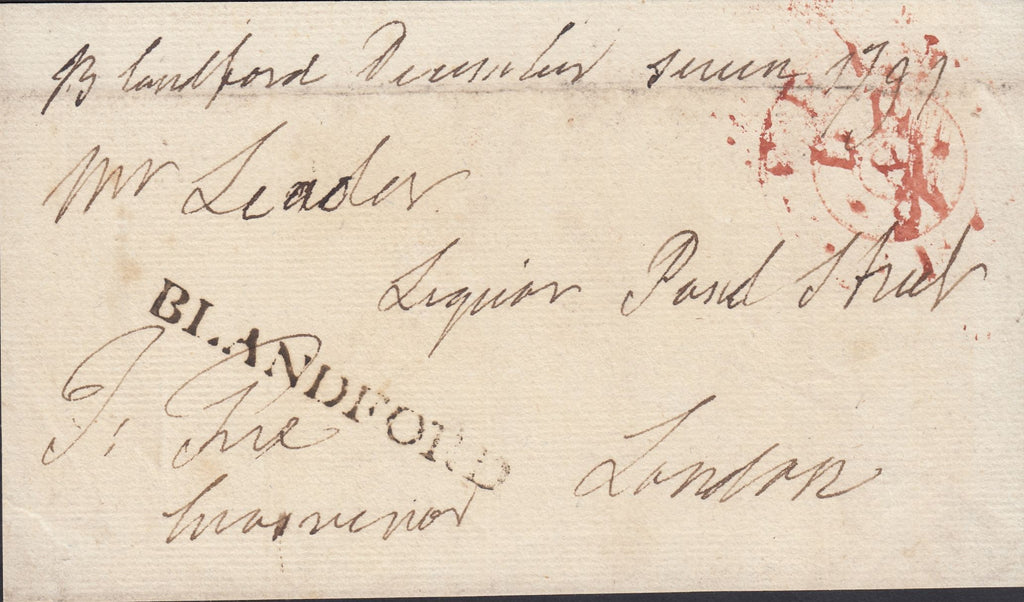 Blandford December seven 1797
Mr Leader
Liquor Pond Street
BLANDFORD
London
Free
Grosvenor